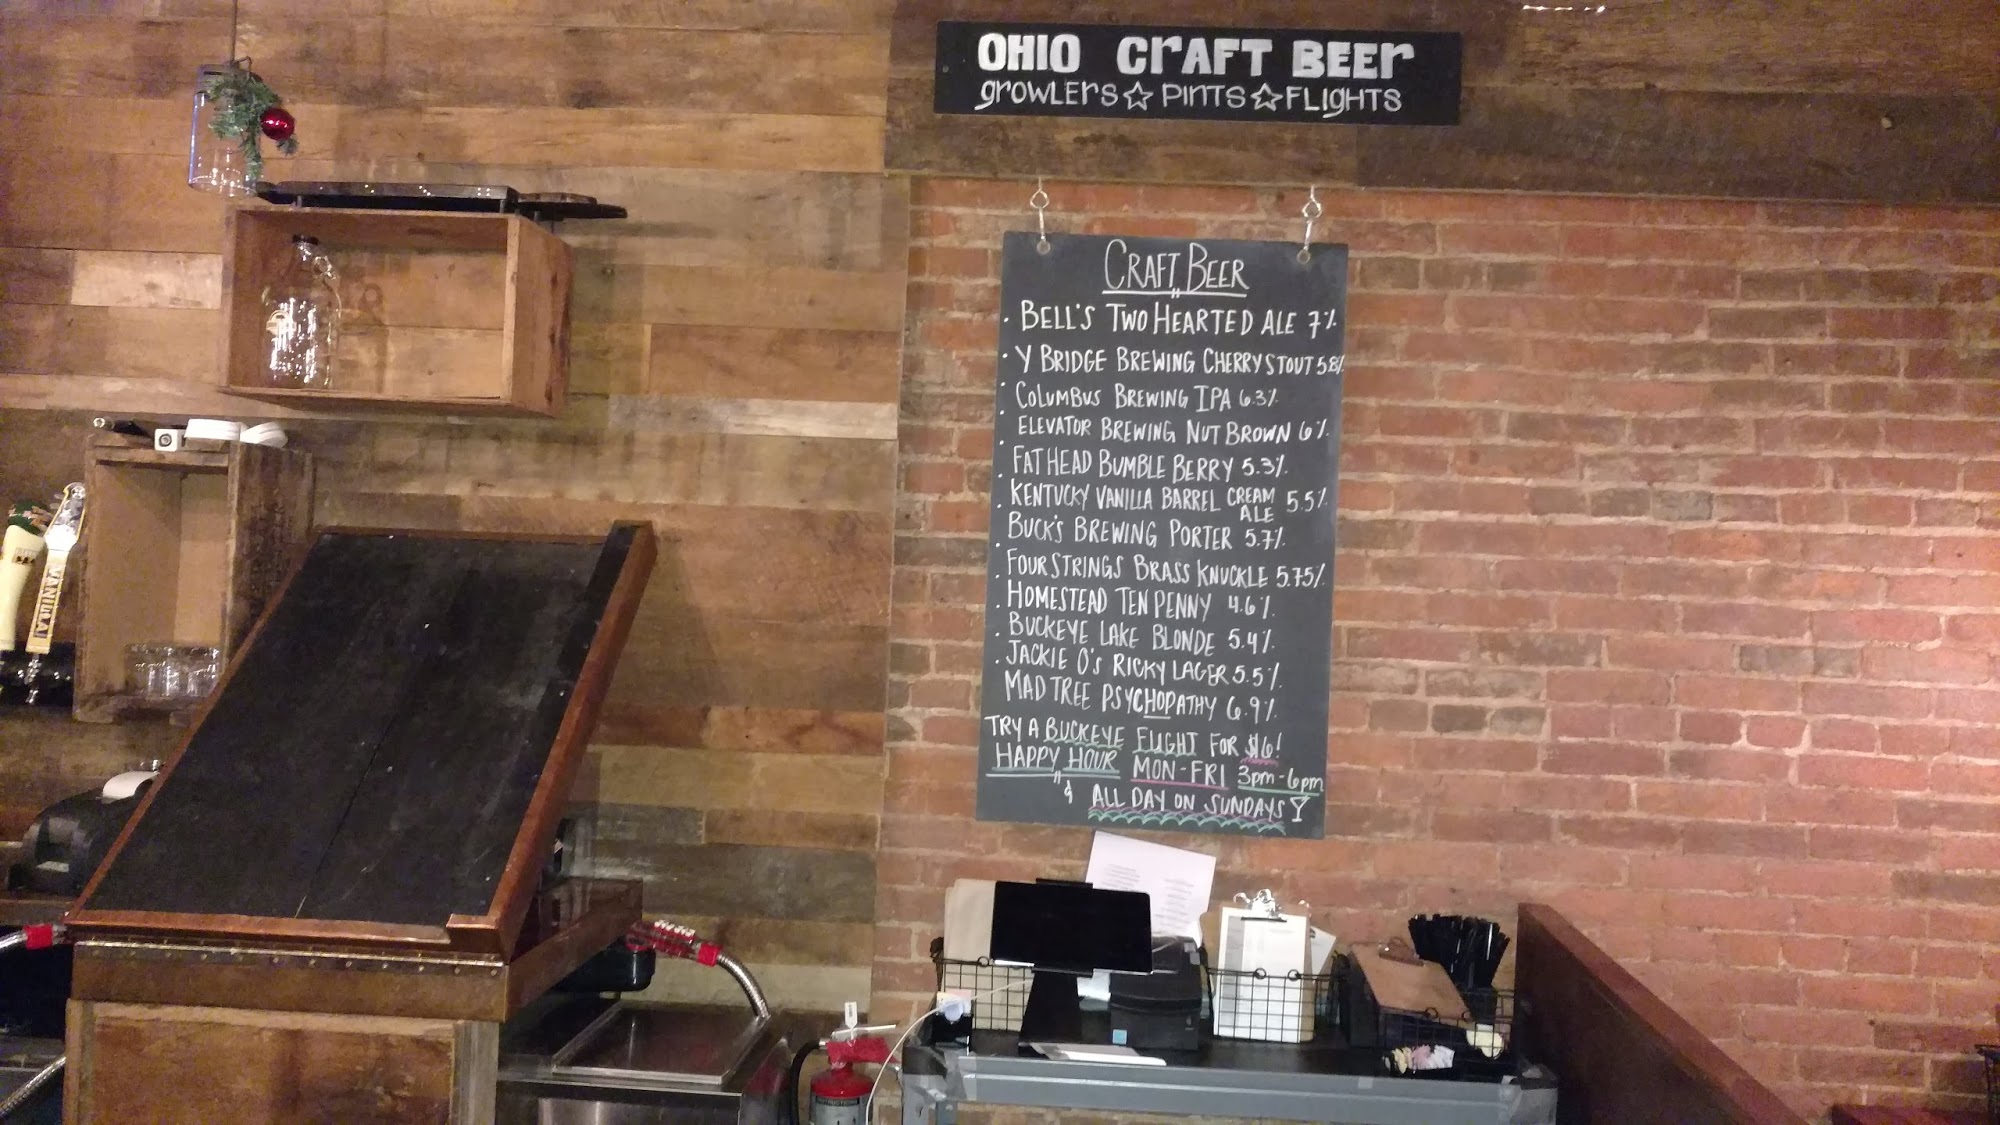 OHIO CRAFT BEER
growLErs☆PINTS☆FLIgHTS
CRAFT BEER
· BELL'S TWO HEARTED ALE 7%
· Y BRIDGE BREWING CHERRY STOUT 5.8%
· COLUMBUS BREWING IPA 6.3%
· ELEVATOR BREWING NUT BROWN 6%
· FAT HEAD BUMBLE BERRY 5.3%
· KENTUCKY VANILLA BARREL CREAM ALE 5.5%
· BUCK'S BREWING PORTER 5.7%
· FOUR STRINGS BRASS KNUCKLE 5.75%
· HOMESTEAD TEN PENNY 4.6%
· BUCKEYE LAKE BLONDE 5.4%
· JACKIE O'S RICKY LAGER 5.5%
· MAD TREE PSYCHOPATHY 6.9%
TRY A BUCKEYE FLIGHT FOR $6!
HAPPY HOUR MON-FRI 3pm-6pm
& ALL DAY ON SUNDAYS
VANILLA